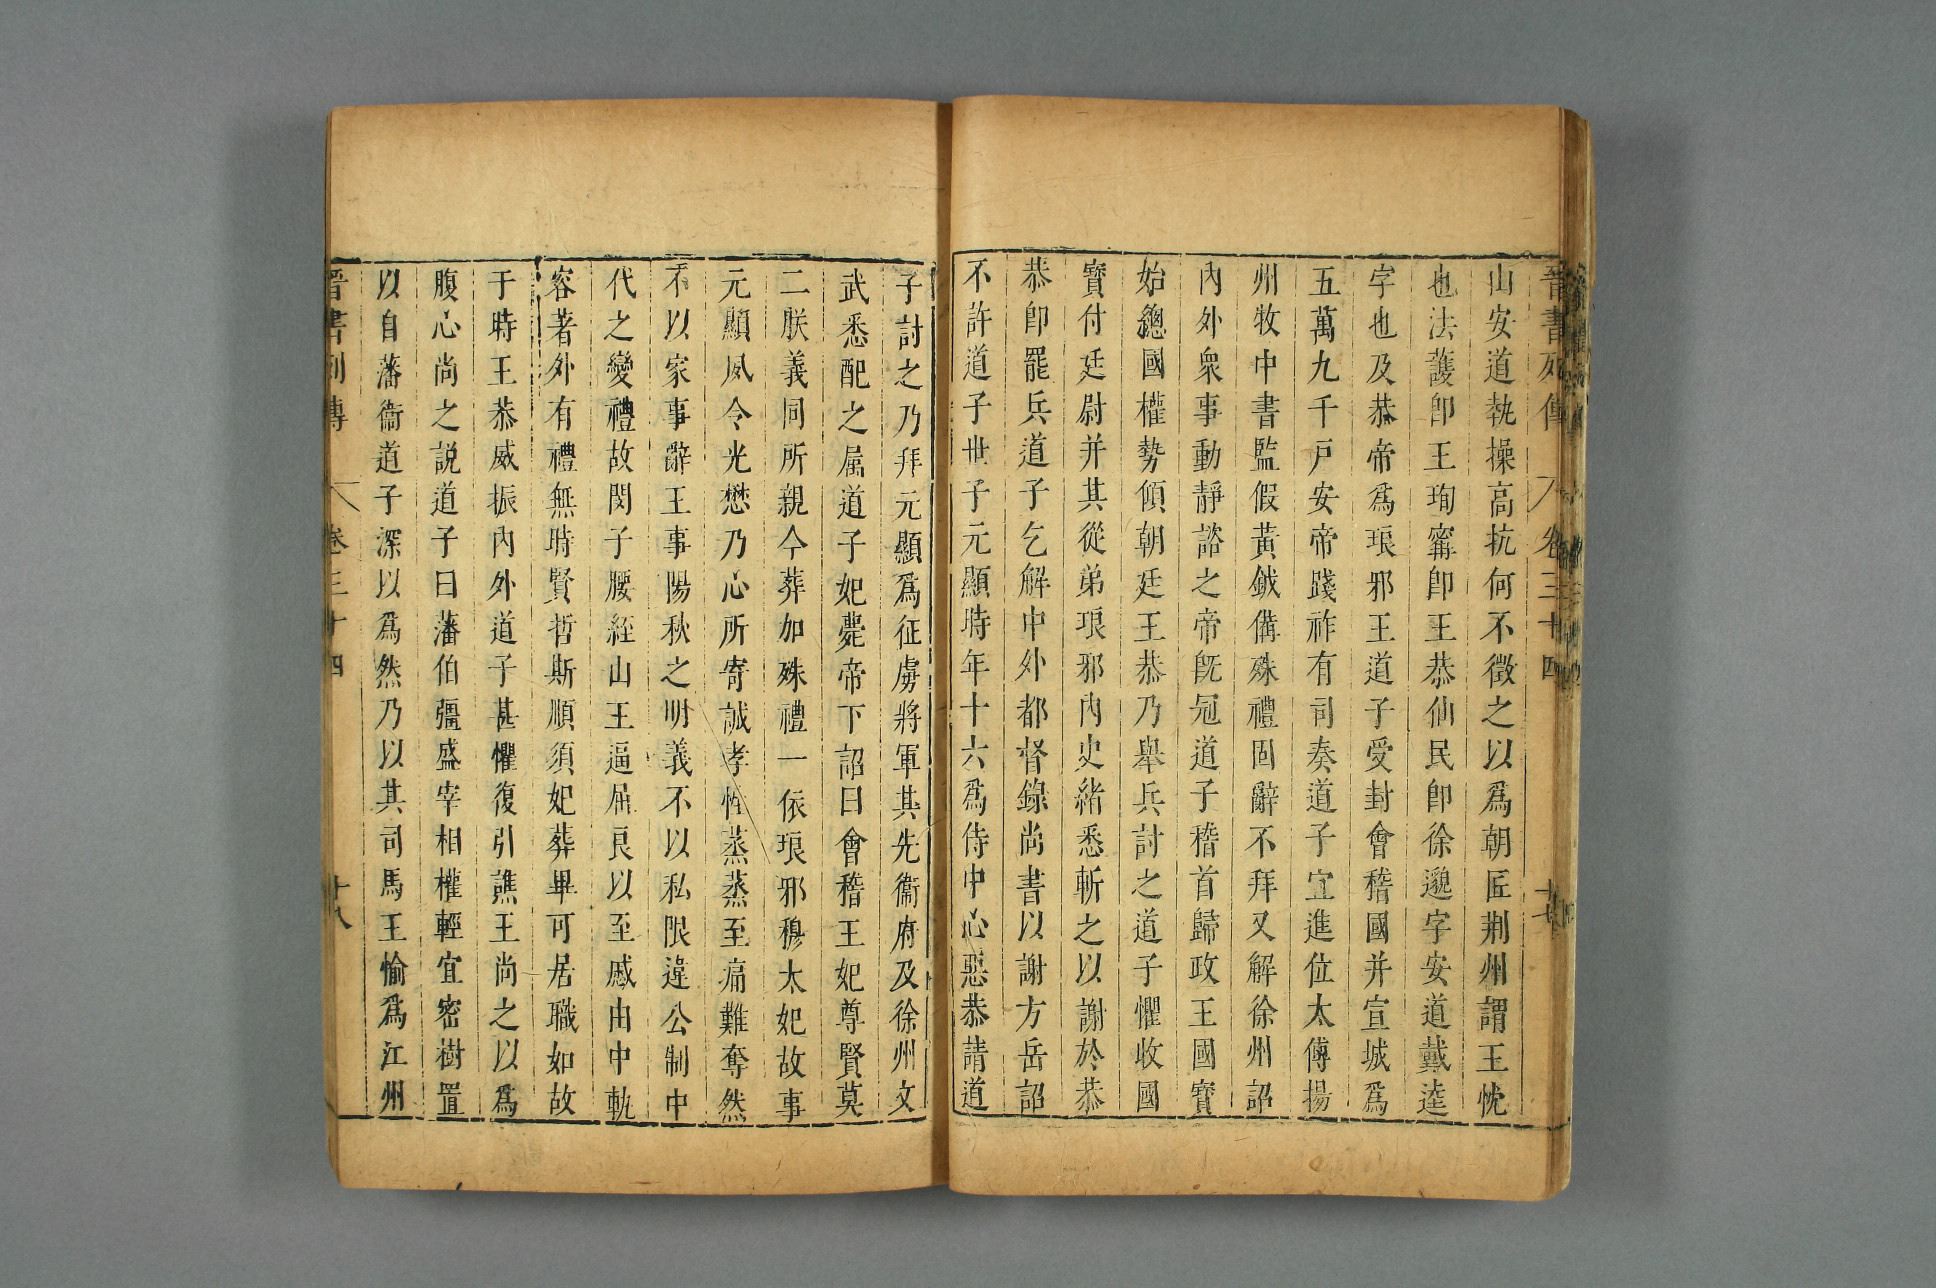 晉書列傳 卷三十四 十七
山安道執操高抗何不徵之以爲朝匠荆州謂王忱
也法護卽王珣甯卽王恭仙民卽徐邈字安道戴逵
字也及恭帝爲琅邪王道子受封會稽國并宣城爲
五萬九千戸安帝踐祚有司奏道子宜進位太傅揚
州牧中書監假黃鉞備殊禮固辭不拜又解徐州詔
內外衆事動靜諮之帝旣冠道子稽首歸政王國寶
始總國權勢傾朝廷王恭乃舉兵討之道子懼收國
寶付廷尉并其從弟琅邪內史緒悉斬之以謝於恭
恭卽罷兵道子乞解中外都督錄尚書以謝方岳詔
不許道子世子元顯時年十六爲侍中心惡恭請道
子討之乃拜元顯爲征虜將軍其先衞府及徐州文
武悉配之屬道子妃薨帝下詔曰會稽王妃尊賢莫
二朕義同所親今葬加殊禮一依琅邪穆太妃故事
元顯夙令光懋乃心所寄誠孝性蒸蒸至痛難奪然
不以家事辭王事陽秋之明義不以私限違公制中
代之變禮故閔子腰絰山王逼屈良以至慼由中軌
容著外有禮無時賢哲斯順須妃葬畢可居職如故
于時王恭威振內外道子甚懼復引譙王尚之以爲
腹心尚之說道子曰藩伯彊盛宰相權輕宜密樹置
以自藩衞道子深以爲然乃以其司馬王愉爲江州
晉書列傳 卷三十四 十八